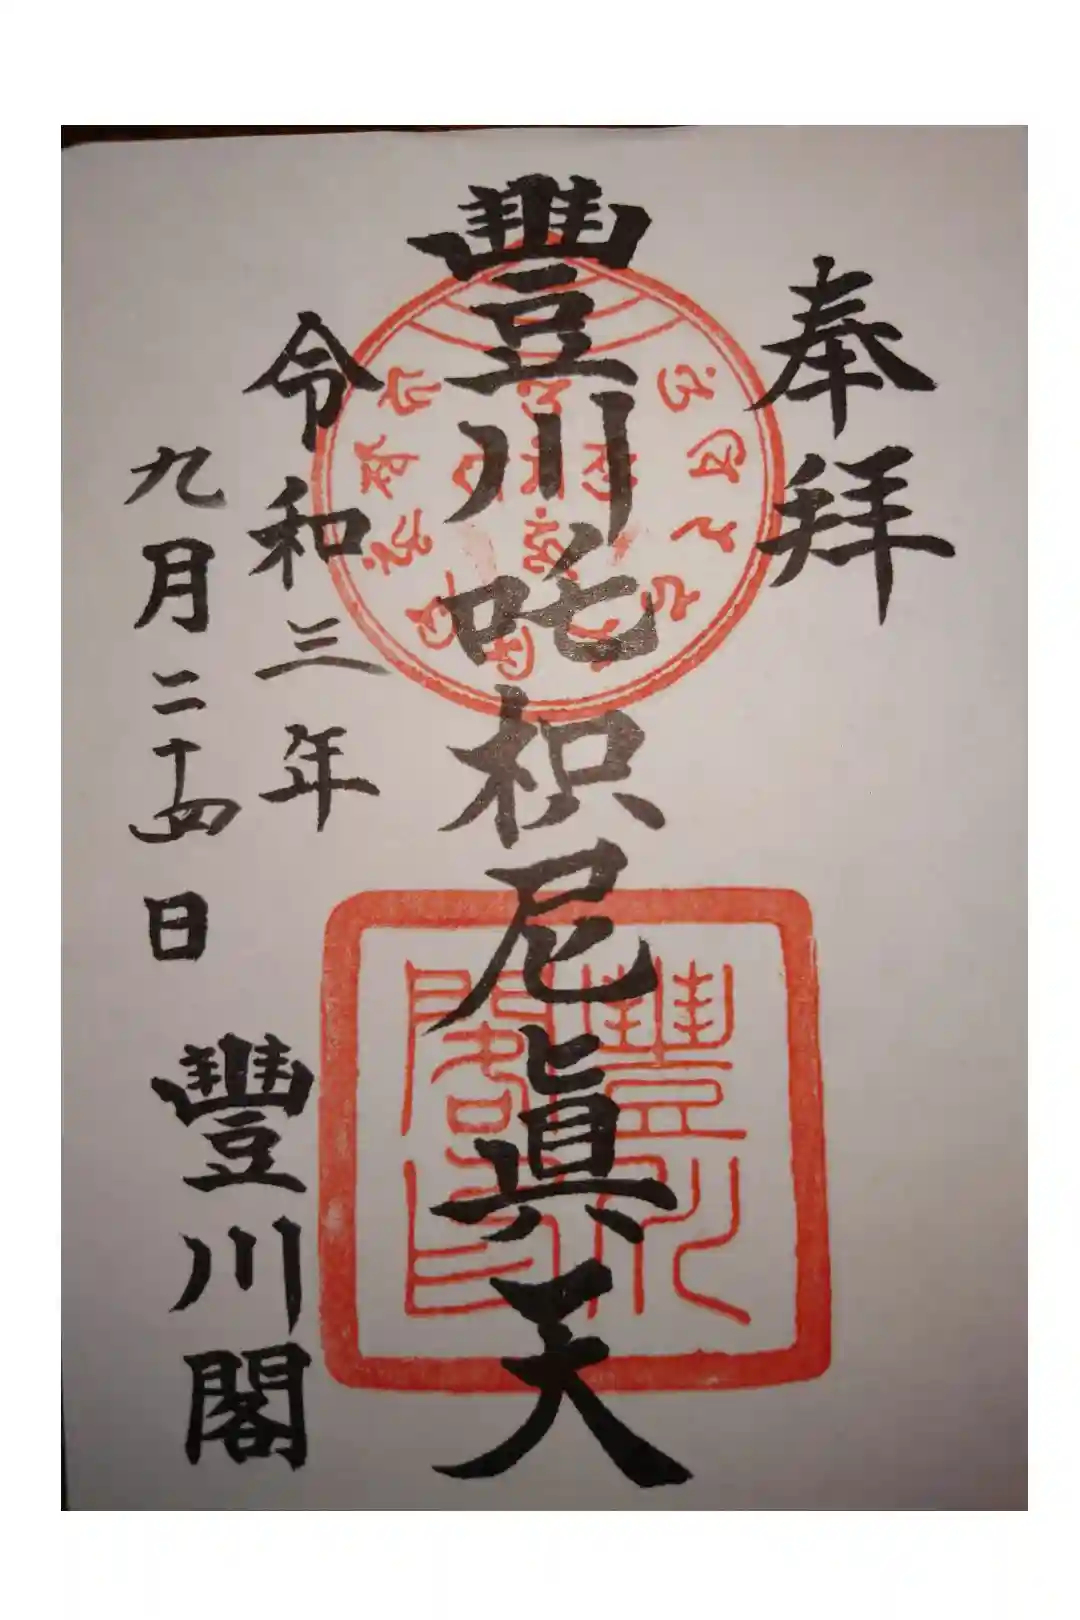 奉拜
豐川吒枳尼眞天
令和三年
九月二十四日
豐川閣
豐川
閣印